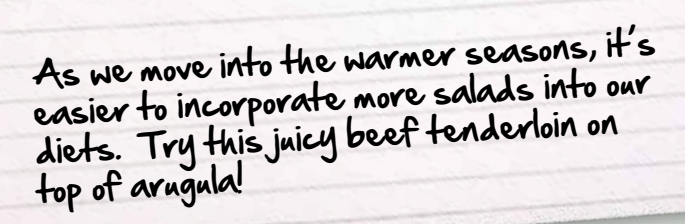 As we move into the warmer seasons, it's
easier to incorporate more salads into our
diets. Try this juicy beef tenderloin on
top of arugula!